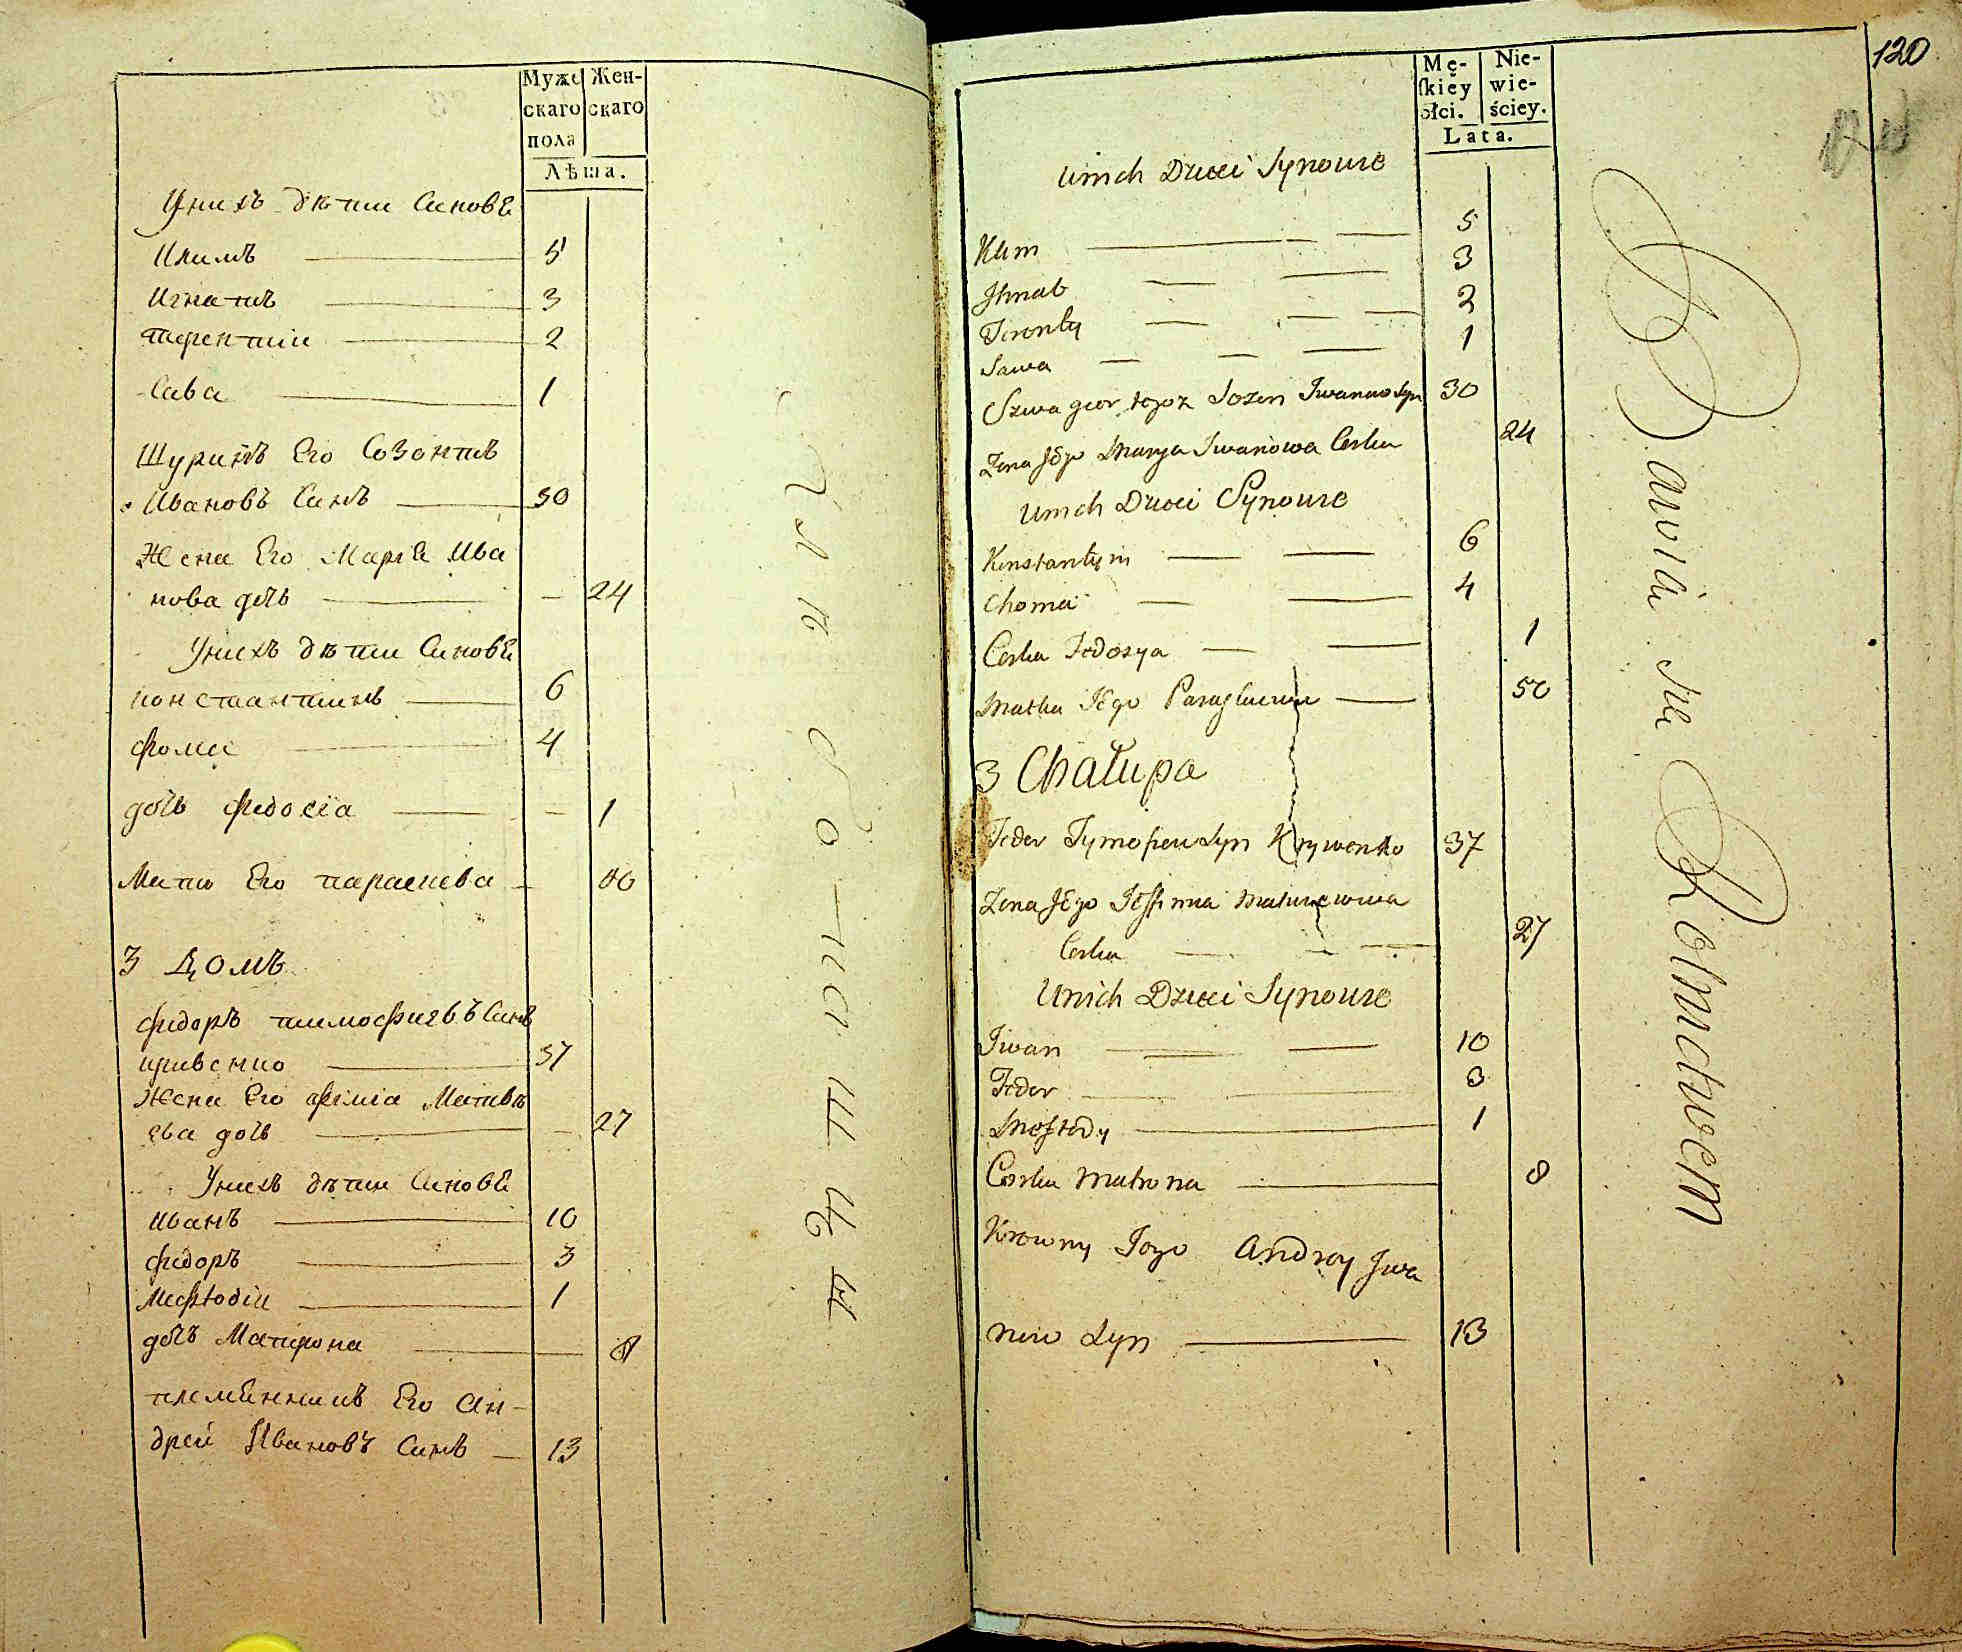 Мужс
скаго
пола
Жен-
скаго
Лѣта.
Унихъ дѣти Синовѣ
Климъ 5
Игнатъ 3
Терентии 2
Сава 1
Шуринъ Его Созонтъ
Ивановъ Синъ 30
Жена Его Марія Ива
нова дочь 24
Унихъ дѣти Синовѣ
Константинъ 6
Фома 4
дочь Федосїа 1
Мати Его параскева
3 Домъ
Федоръ тимофиевъ Синъ
кривенко 37
Жена Его Матвѣ
ева дочь 27
Унихъ дѣти Синовѣ
Иванъ 10
Федоръ 3
Мефтодіи 1
дочь Матрона 8
племенникъ Его Ан-
дрей Ивановъ Синъ 13
120
Mę-
skiey
płci.
Nie-
wie-
ściey.
Lata.
Unich Dzieci Synowie
Klim 5
Ihnat 3
Teronty 2
Sawa 1
Szwagier tegoż Sozon Iwanow Syn 30
Zona Jego Marya Iwanowa Corka 24
Unich Dzieci Synowie
Konstantyin 6
Choma 4
Corka Fedosya 1
Matka Jego Paraskiewia 50
3 Chałupa
Feder Tymofieu Syn Krywenko 37
Zona Jego Matwiewna
Corka 27
Unich Dzieci Synowie
Iwan 10
Feder 3
Meftody 1
Corka Matrona 8
Krowny Jego Andrey Iwa
now Syn 13
Bawią się Rolnictwem